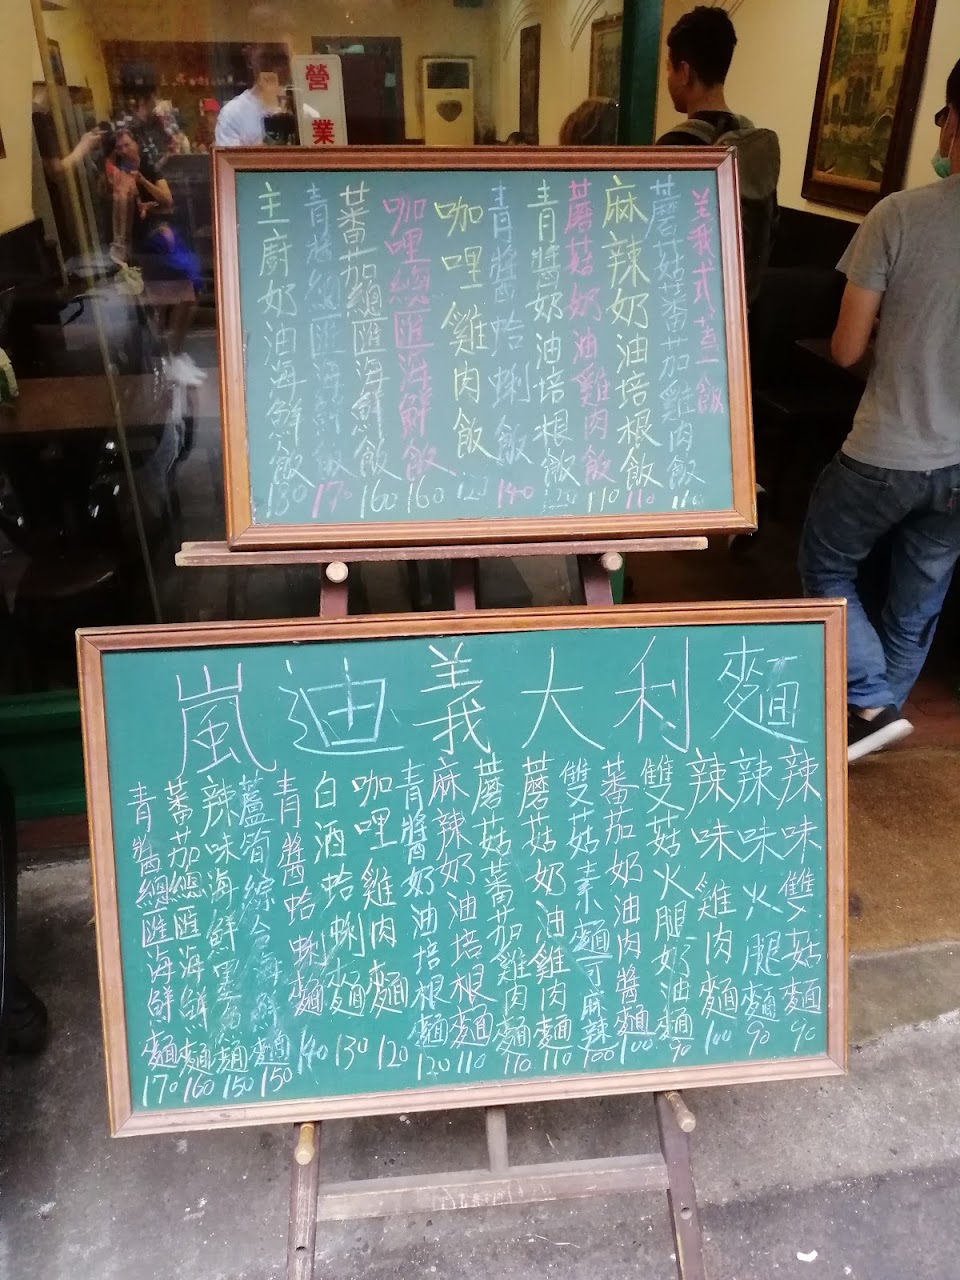 營業
義式燉飯
蘑菇蕃茄雞肉飯 110
麻辣奶油培根飯 110
蘑菇奶油雞肉飯 110
青醬奶油培根飯 120
青醬蛤蜊飯 140
咖哩雞肉飯 120
咖哩總匯海鮮飯 160
蕃茄總匯海鮮飯 160
青醬總匯海鮮飯 170
主廚奶油海鮮飯 130
嵐迪義大利麵
辣味雙菇麵 90
辣味火腿麵 90
辣味雞肉麵 100
雙菇火腿奶油麵 90
蕃茄奶油肉醬麵 100
雙菇素麵可麻辣 100
蘑菇奶油雞肉麵 110
蘑菇蕃茄雞肉麵 110
麻辣奶油培根麵 110
青醬奶油培根麵 120
咖哩雞肉麵 120
白酒蛤蜊麵 130
青醬蛤蜊麵 140
蘆筍綜合海鮮麵 150
辣味海鮮墨魚麵 150
蕃茄總匯海鮮麵 160
青醬總匯海鮮麵 170